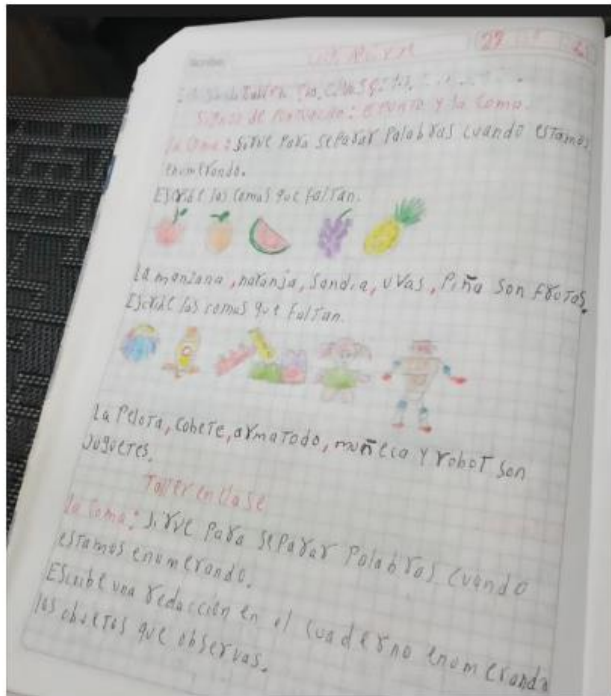 29
Signos de Puntuación: El Punto y la Coma.
La Coma: Sirve Para Separar Palabras cuando estamos
enumerando.
Escribe las comas que faltan.
La manzana, naranja, Sandia, uvas, Piña Son frutas.
Escribe las comas que Faltan.
La Pelota, Cohete, armatodo, muñeca Y robot Son
Juguetes.
Taller en Clase
La Coma: Sirve Para Separar Palabras Cuando
estamos enumerando.
Escribe una redacción en el Cuaderno enumerando
los objetos que observas.